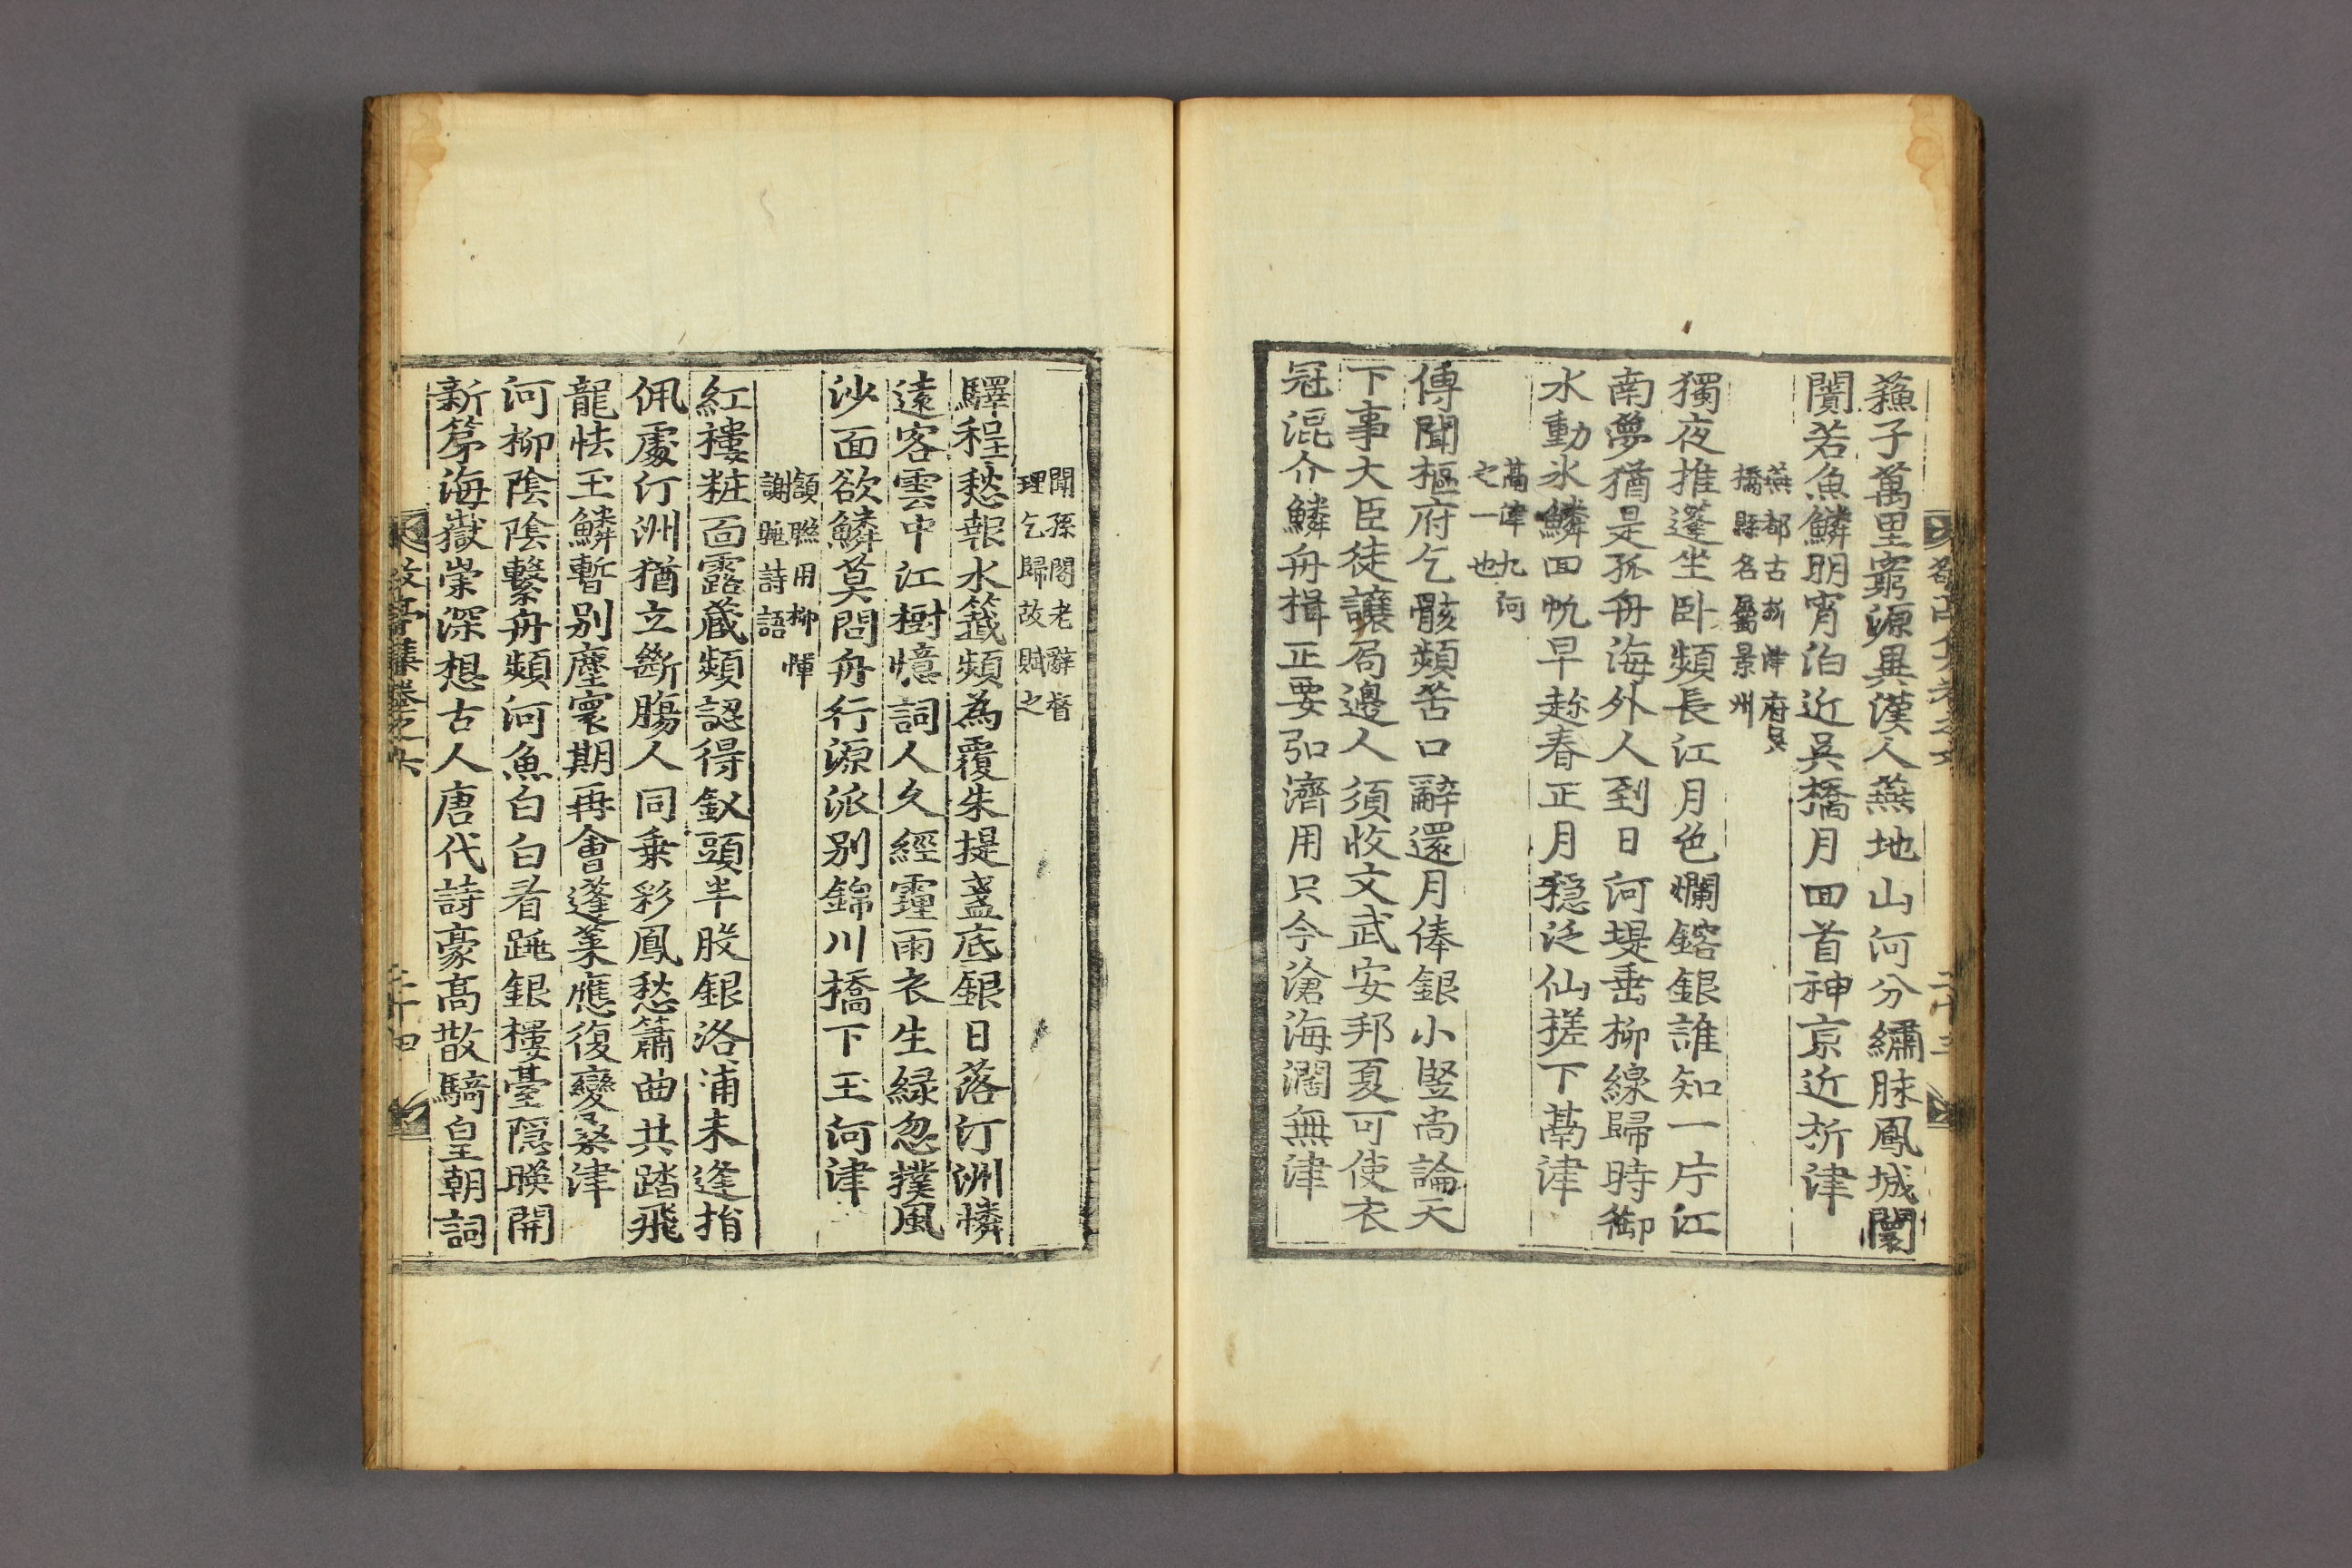 蘓子萬里窮源異漢人燕地山河分繡脉鳳城闤
闠若魚鱗明宵泊近吳橋月回首神京近析津
燕都古析津府吳
橋縣名屬景州
獨夜推蓬坐卧頻長江月色爛鎔銀誰知一片江
南夢猶是孤舟海外人到日河堤垂柳線歸時御
水動氷鱗回帆早趂春正月穏泛仙槎下鬲津
鬲津九河
之一也
傳聞樞府乞骸頻苦口辭還月俸銀小竪尚論天
下事大臣徒讓局邊人須收文武安邦夏可使衣
冠混介鱗舟楫正要弘濟用只今滄海濶無津
聞孫閣老辭督
理乞歸故賦之
驛程愁報水籤頻為覆朱提盞底銀日落汀洲憐
遠客雲中江樹憶詞人久經霾雨衣生綠忽撲風
沙面欲鱗莫問舟行源派别錦川橋下玉河津
頷聮用柳惲
謝朓詩語
紅樓粧面露蔵頻認得釵頭半股銀洛浦未逢捐
佩處汀洲猶立斷膓人同乗彩鳳愁簫曲共踏飛
龍怯玉鱗暫别塵寰期再會蓬莱應復變桑津
河柳陰陰繫舟頻河魚白白看跳銀樓䑓隠暎開
新篘海嶽崇深想古人唐代詩豪高散騎皇朝詞
紋亭集卷之
二十四